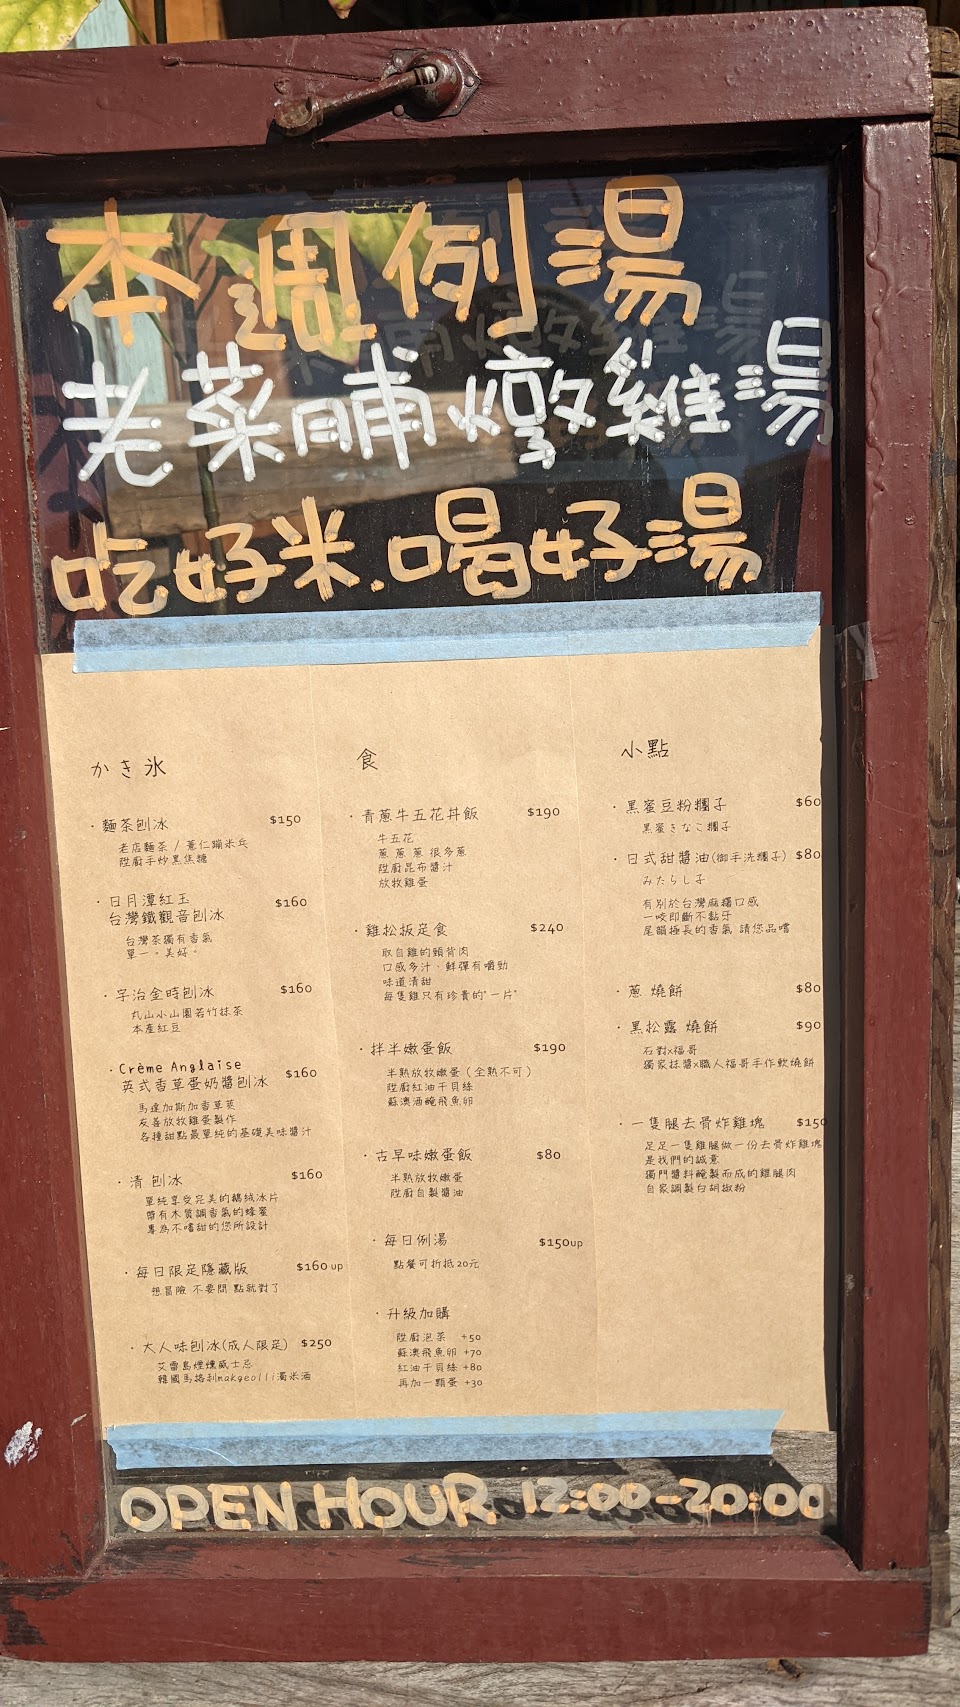 本週例湯
老菜脯燉雞湯
吃好米.喝好湯
かき氷
・麵茶刨冰 $150
老店麵茶 / 薏仁蹦米兵
陞廚手炒黑焦糖
・日月潭紅玉
台灣鐵觀音刨冰 $160
台灣茶獨有香氣
單一。美好。
・宇治金時刨冰 $160
丸山小山園若竹抹茶
本產紅豆
・Crème Anglaise
英式香草蛋奶醬刨冰 $160
馬達加斯加香草莢
友善放牧雞蛋製作
各種甜點最單純的基礎美味醬汁
・清 刨冰 $160
單純享受完美的鵝絨冰片
帶有木質調香氣的蜂蜜
專為不嗜甜的您所設計
・每日限定隱藏版 $160 up
想冒險 不要問 點就對了
・大人味刨冰(成人限定) $250
艾雷島煙燻威士忌
韓國馬格利makgeolli濁米酒
食
・青蔥牛五花丼飯 $190
牛五花
蔥 蔥 蔥 很多蔥
陞廚昆布醬汁
放牧雞蛋
・雞松扳定食 $240
取自雞的頸背肉
口感多汁、鮮彈有嚼勁
味道清甜
每隻雞只有珍貴的"一片"
・拌半嫩蛋飯 $190
半熟放牧嫩蛋（全熟不可）
陞廚紅油干貝絲
蘇澳酒醃飛魚卵
・古早味嫩蛋飯 $80
半熟放牧嫩蛋
陞廚自製醬油
・每日例湯 $150up
點餐可折抵20元
・升級加購
陞廚泡菜 +50
蘇澳飛魚卵 +70
紅油干貝絲 +80
再加一顆蛋 +30
小點
・黑蜜豆粉糰子 $60
黑蜜きなこ糰子
・日式甜醬油(御手洗糰子) $80
みたらし子
有別於台灣麻糬口感
一咬即斷不黏牙
尾韻極長的香氣 請您品嚐
・蔥 燒餅 $80
・黑松露 燒餅 $90
石對x福哥
獨家抹醬x職人福哥手作軟燒餅
・一隻腿去骨炸雞塊 $150
足足一隻雞腿做一份去骨炸雞塊
是我們的誠意
獨門醬料醃製而成的雞腿肉
自家調製白胡椒粉
OPEN HOUR 12:00-20:00